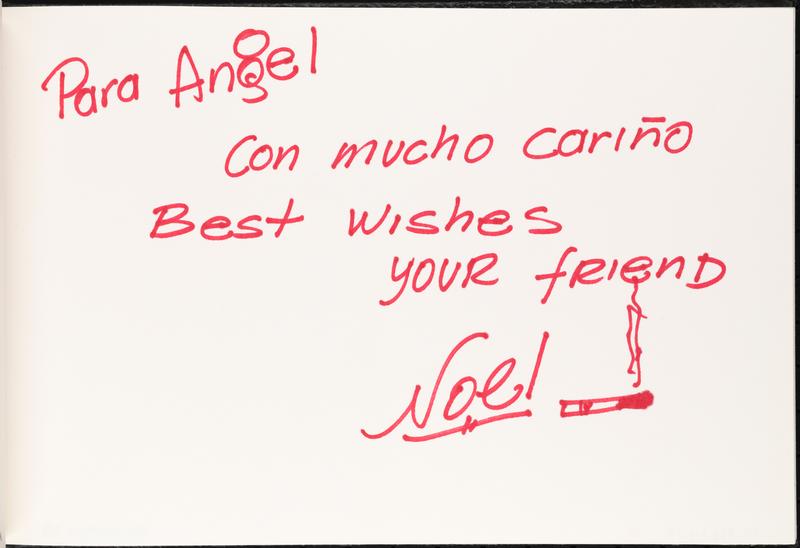 Para Angel
Con mucho cariño
Best wishes
YOUR fRIEND
Noel